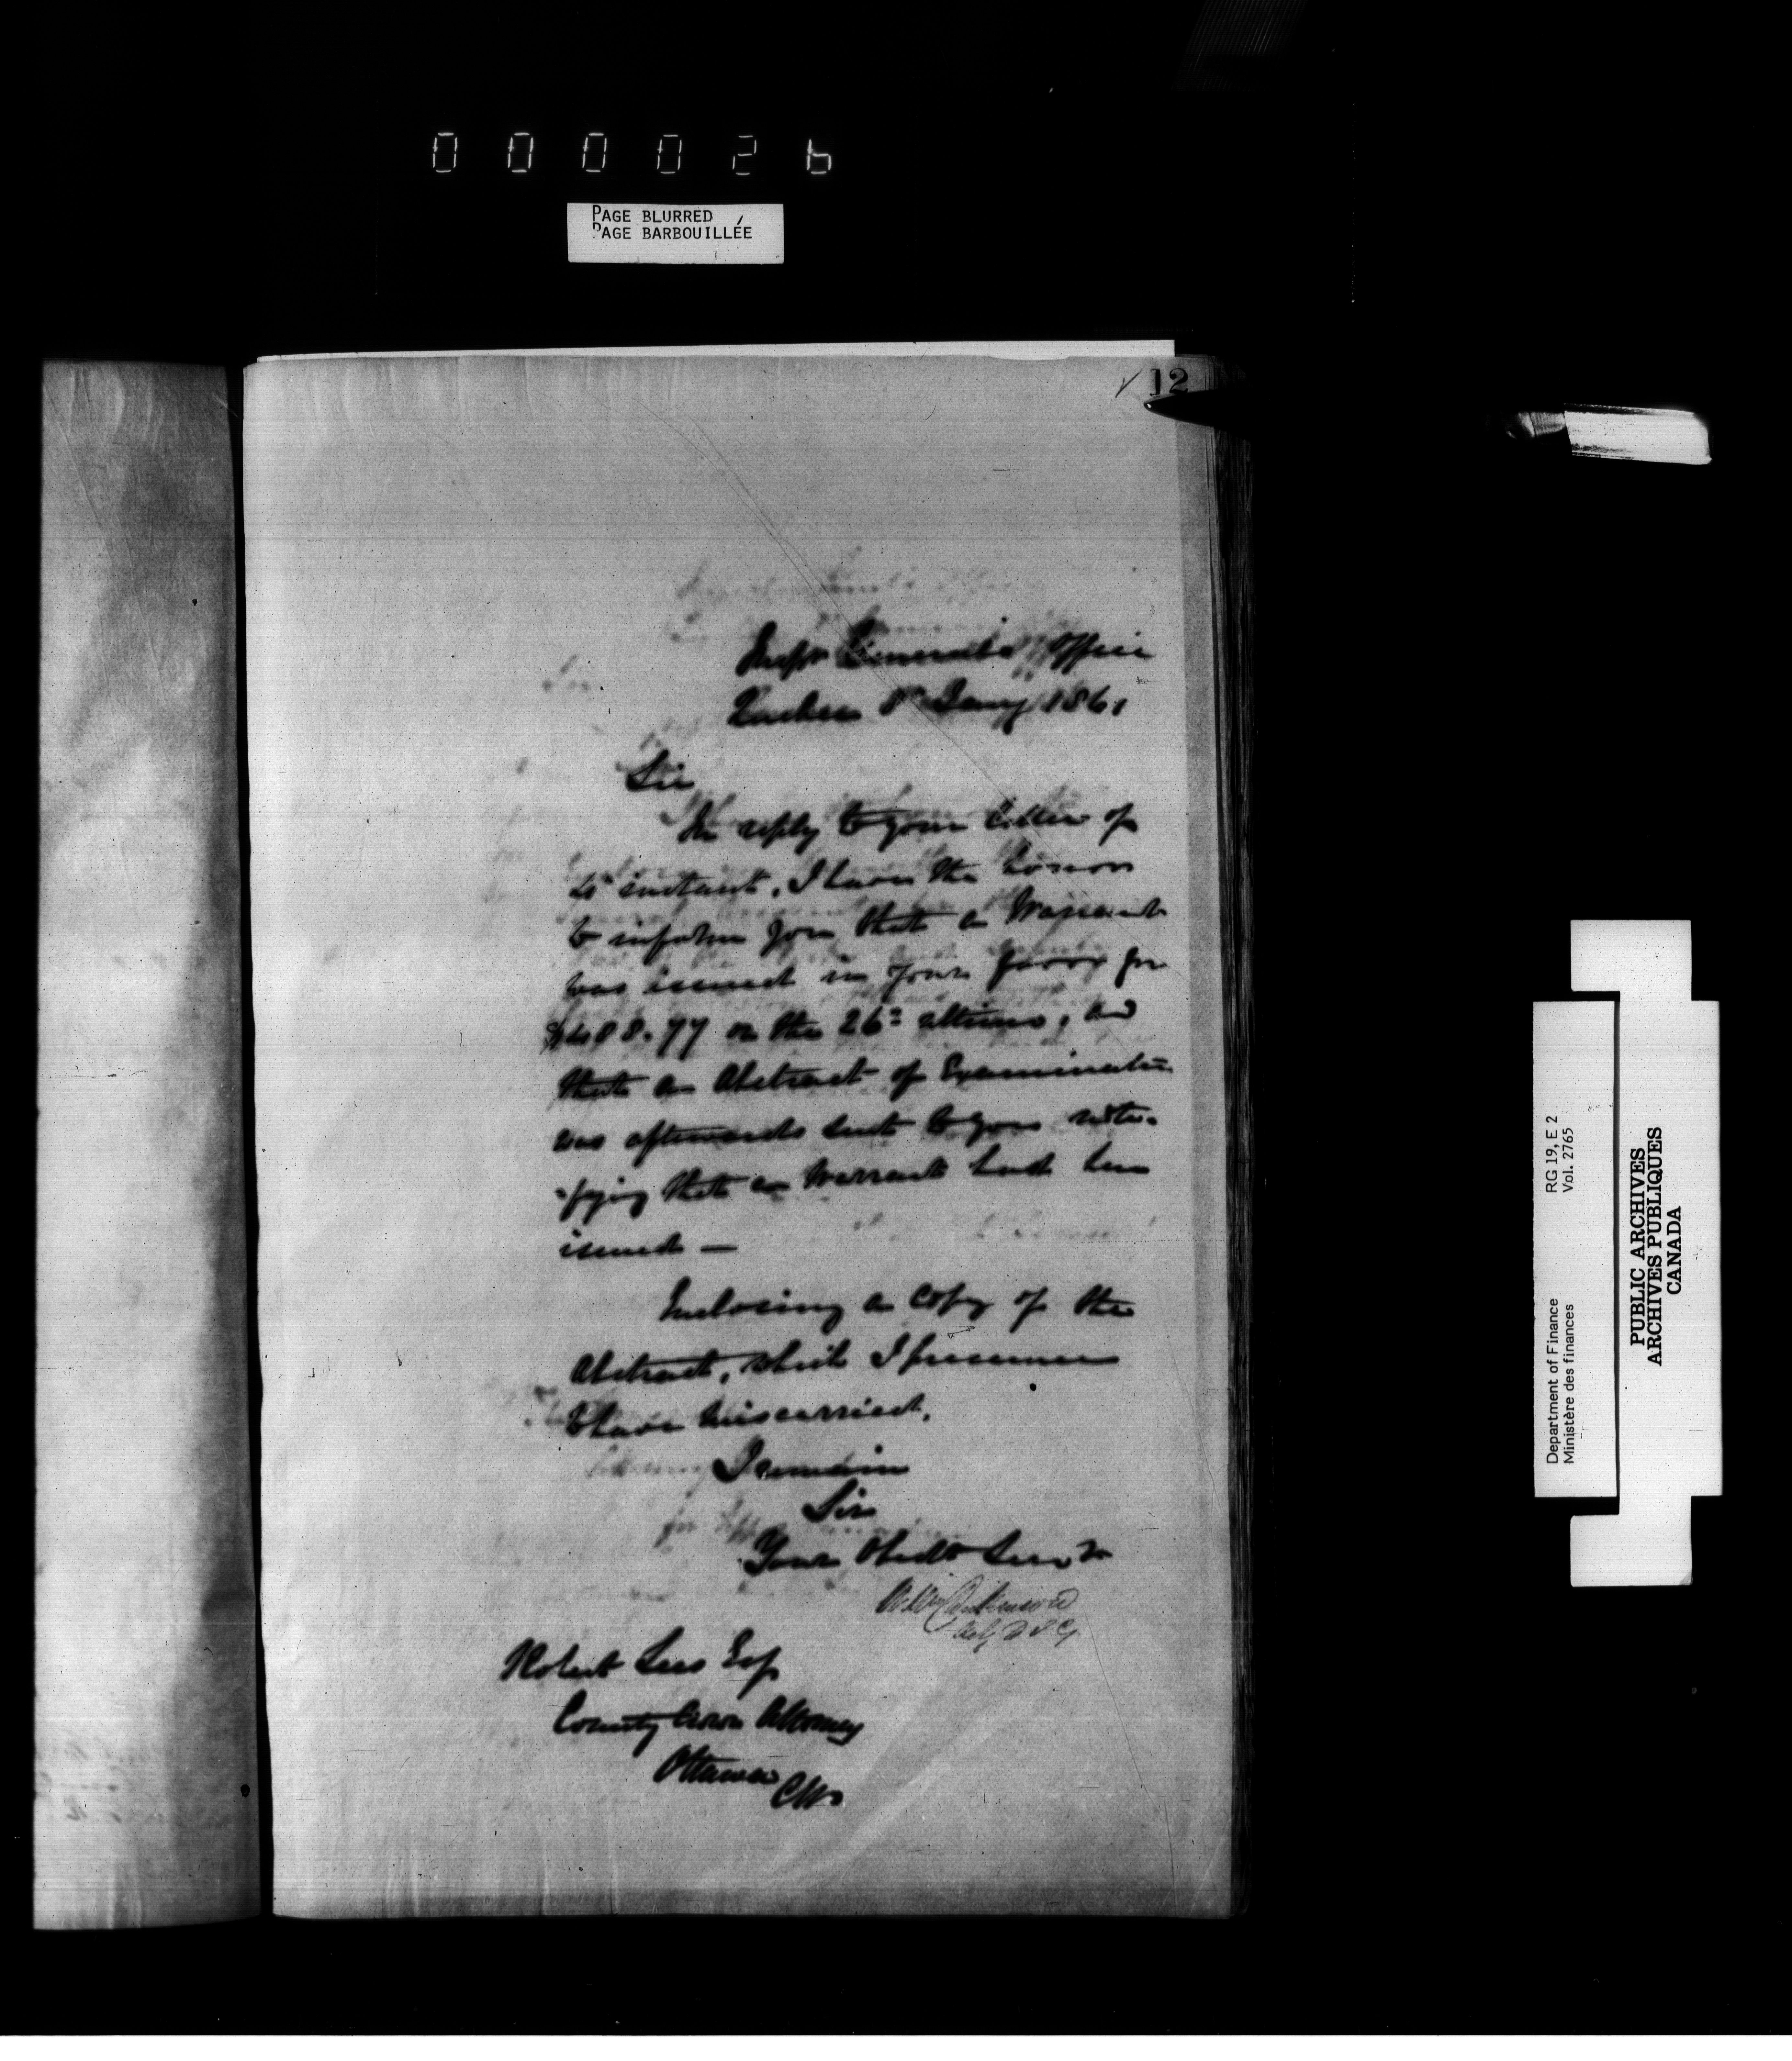 00002b
PAGE BLURRED
PAGE BARBOUILLÉE
12
Inspr General's Office
Quebec 8th Jany 1861
Sir
In reply to your letter of
instant, I have the honor
to inform you that a Warrant
was issued in your favor for
on the 26th ultimo, and
that an Abstract of Examination
was afterwards sent to you noti-
-fying that a Warrant had been
issued —
Enclosing a copy of the
Abstract, which I presume
to have miscarried,
I remain
Sir
Your Obedt Servt
Dickinson
Robert Lees Esq
County Crown Attorney
Ottawa
CW
Department of Finance RG 19, E 2
Ministère des finances Vol. 2765
PUBLIC ARCHIVES
ARCHIVES PUBLIQUES
CANADA